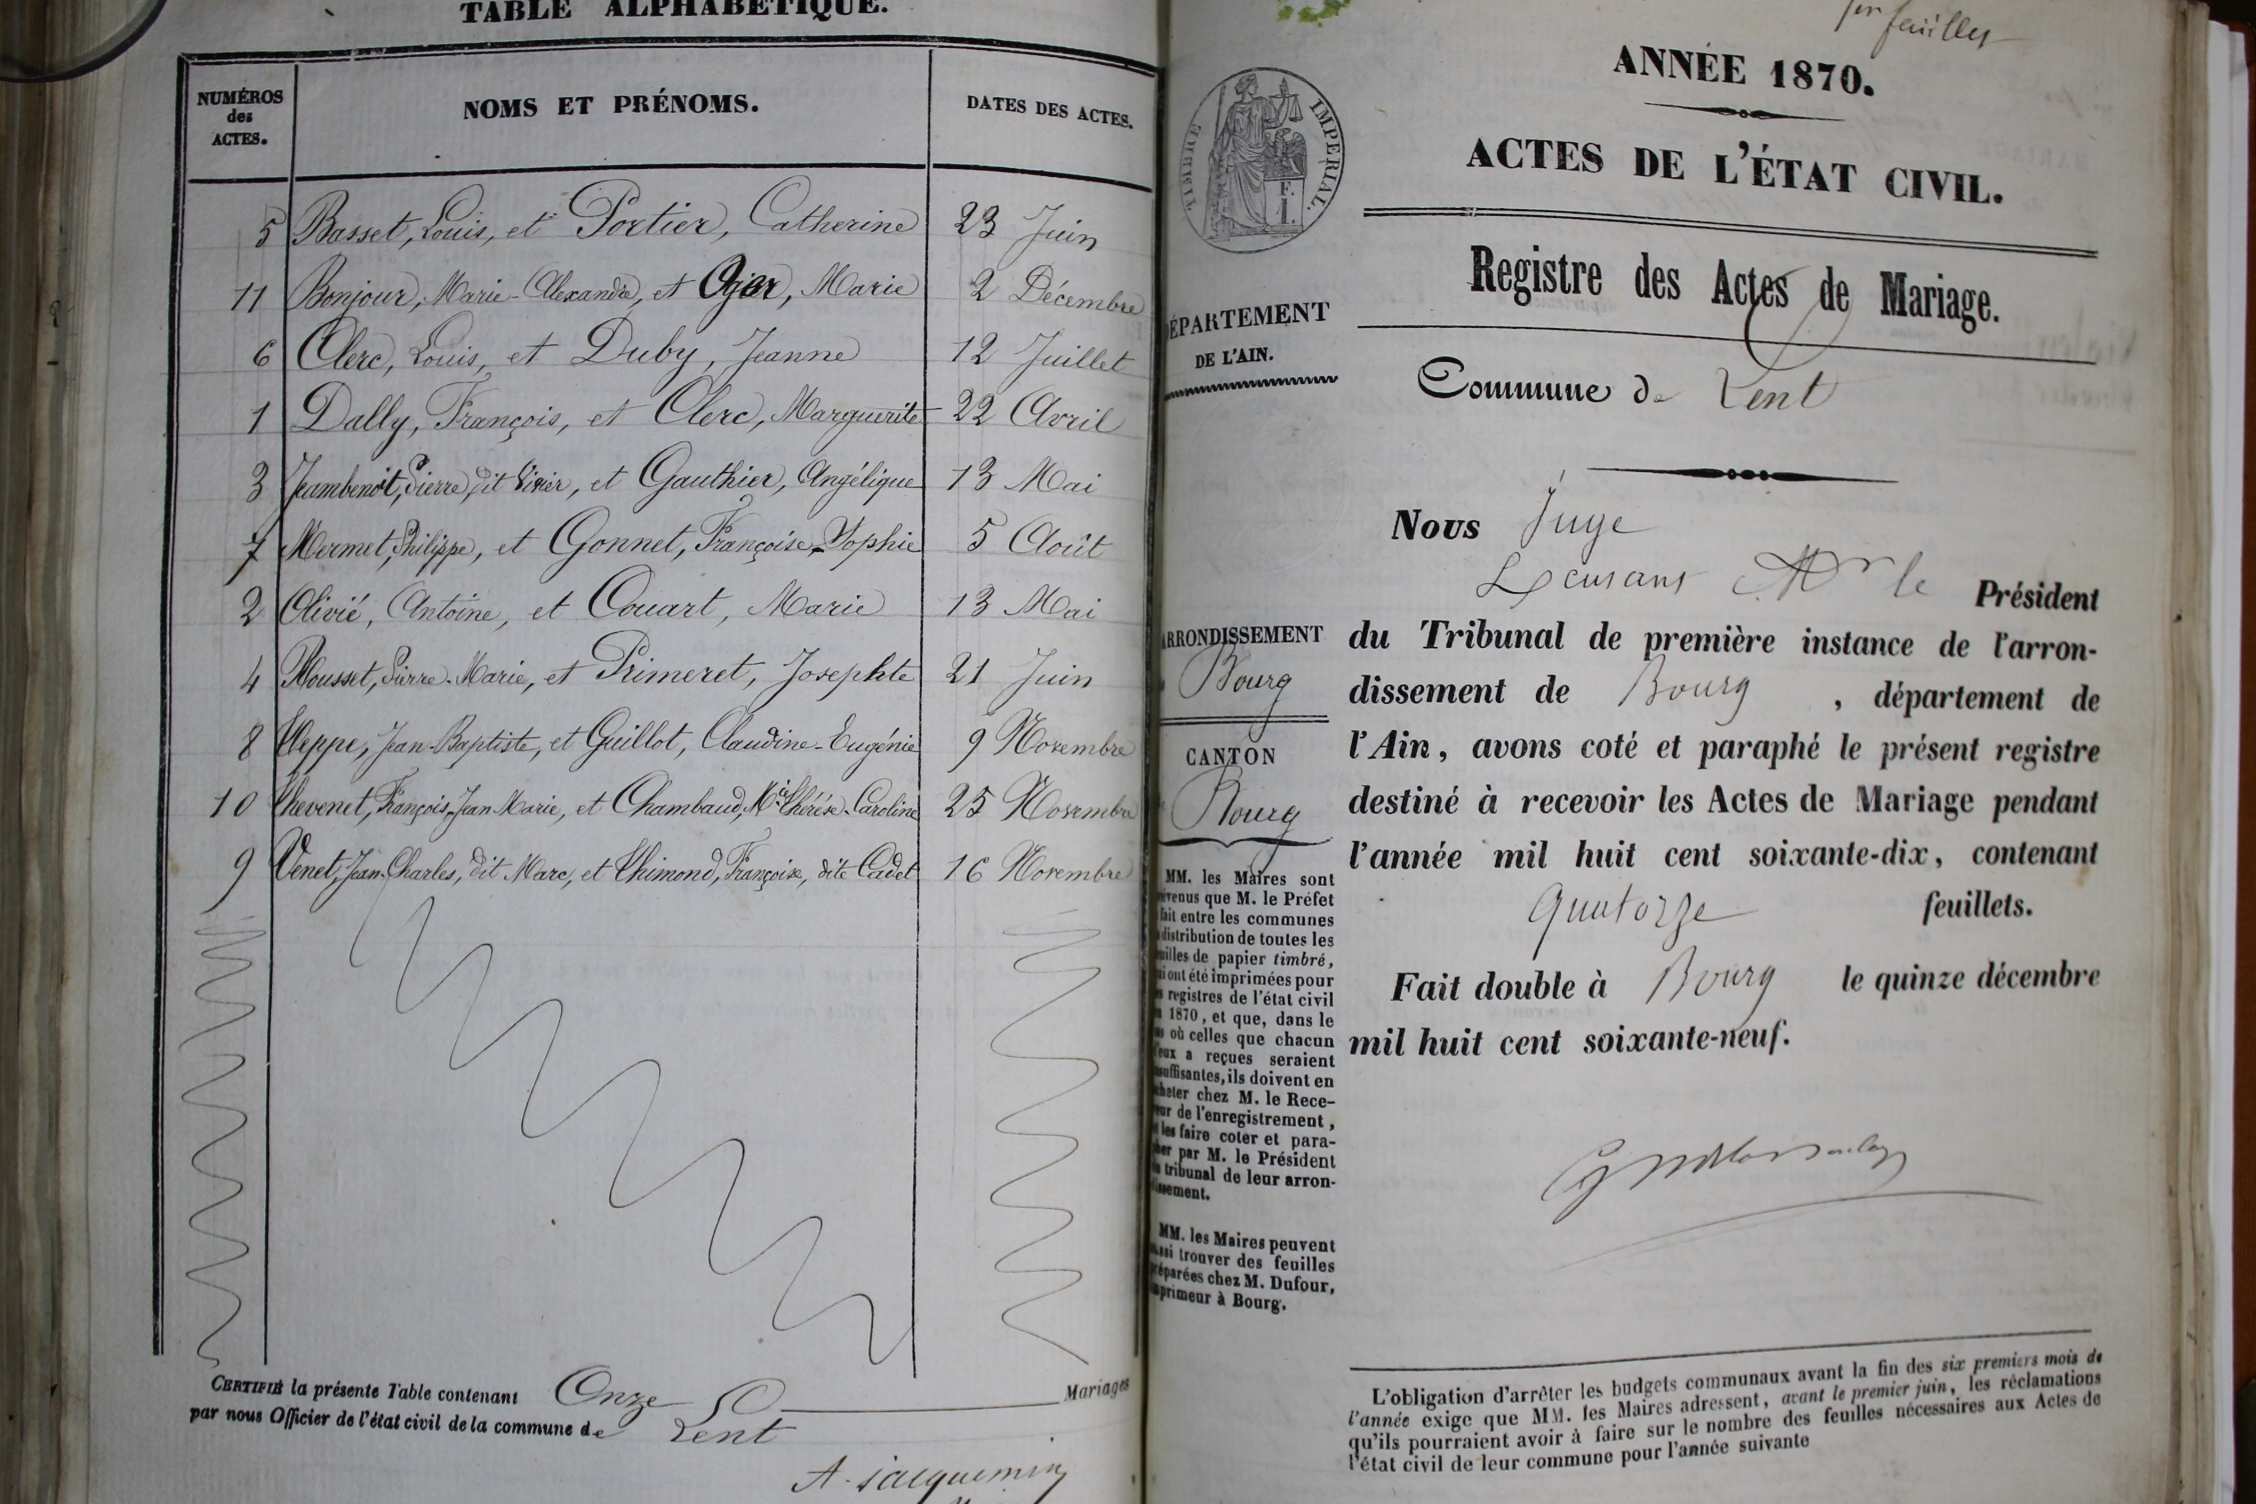 TABLE ALPHABÉTIQUE.
NUMÉROS
des
ACTES.
NOMS ET PRÉNOMS.
DATES DES ACTES.
5 Basset, Louis, et Portier, Catherine 23 Juin
11 Bonjour, Marie-Alexandre, et Oger, Marie 2 Décembre
6 Clerc, Louis, et Duby, Jeanne 12 Juillet
1 Dally, François, et Clerc, Marguerite 22 Avril
3 Jeambenoit, Pierre, dit Vivier, et Gauthier, Angélique 13 Mai
7 Mermet, Philippe, et Gonnet, Françoise-Sophie 5 Août
2 Olivié, Antoine, et Couart, Marie 13 Mai
4 Rousset, Pierre-Marie, et Primeret, Josephte 21 Juin
8 Teppe, Jean-Baptiste, et Guillot, Claudine-Eugénie 9 Novembre
10 Thevenet, François-Jean-Marie, et Chambaud, Mie Thérèse-Caroline 25 Novembre
9 Venet, Jean-Charles, dit Marc, et Thimond, Françoise, dite Cadet 16 Novembre
CERTIFIÉ la présente Table contenant Onze Mariages
par nous Officier de l'état civil de la commune de Lent
A. Jacquemin
feuilles
ANNÉE 1870.
ACTES DE L'ÉTAT CIVIL.
TIMBRE IMPERIAL.
F.
I.
Registre des Actes de Mariage.
DÉPARTEMENT
DE L'AIN.
Commune de Lent
Nous Juge
Mr le Président
du Tribunal de première instance de l'arron-
dissement de Bourg, département de
l'Ain, avons coté et paraphé le présent registre
destiné à recevoir les Actes de Mariage pendant
l'année mil huit cent soixante-dix, contenant
Quatorze feuillets.
Fait double à Bourg le quinze décembre
mil huit cent soixante-neuf.
ARRONDISSEMENT
Bourg
CANTON
Bourg
MM. les Maires sont
prévenus que M. le Préfet
fait entre les communes
distribution de toutes les
feuilles de papier timbré,
qui ont été imprimées pour
les registres de l'état civil
1870, et que, dans le
cas où celles que chacun
d'eux a reçues seraient
insuffisantes, ils doivent en
acheter chez M. le Rece-
veur de l'enregistrement,
et les faire coter et para-
pher par M. le Président
du tribunal de leur arron-
dissement.
MM. les Maires peuvent
aussi trouver des feuilles
préparées chez M. Dufour,
imprimeur à Bourg.
L'obligation d'arrêter les budgets communaux avant la fin des six premiers mois de
l'année exige que MM. les Maires adressent, avant le premier juin, les réclamations
qu'ils pourraient avoir à faire sur le nombre des feuilles nécessaires aux Actes de
l'état civil de leur commune pour l'année suivante